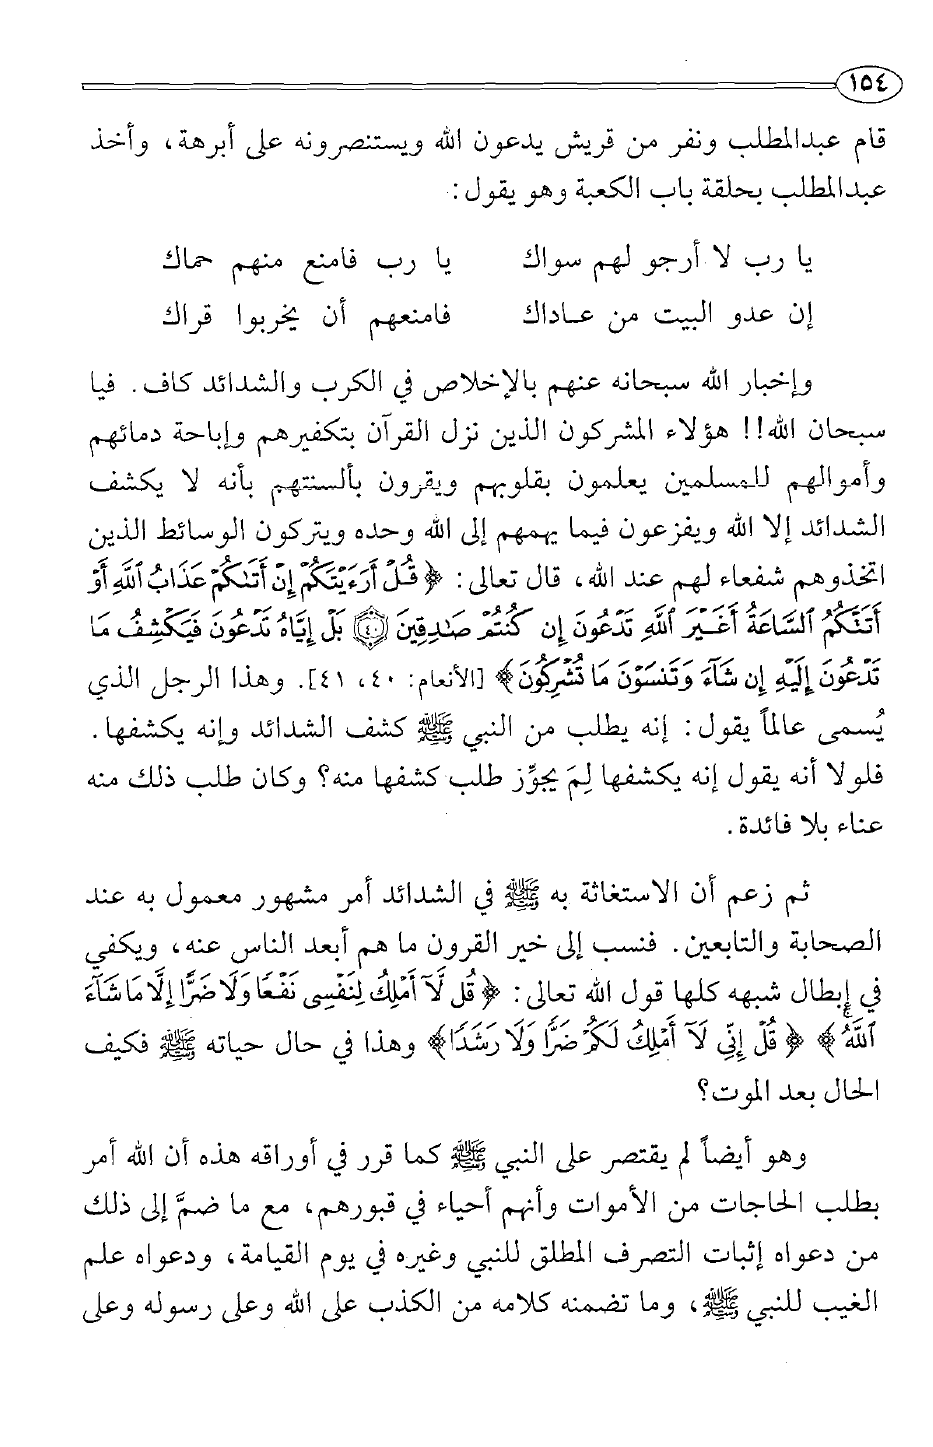 ١٥٤
قام عبدالمطلب ونفر من قريش يدعون الله ويستنصرونه على أبرهة، وأخذ
عبدالمطلب بحلقة باب الكعبة وهو يقول:
يا رب لا أرجو لهم سواك يا رب فامنع منهم حماك
إن عدو البيت من عـاداك فامنعهم أن يخربوا قراك
وإخبار الله سبحانه عنهم بالإخلاص في الكرب والشدائد كاف. فيا
سبحان الله!! هؤلاء المشركون الذين نزل القرآن بتكفيرهم وإباحة دمائهم
وأموالهم للمسلمين يعلمون بقلوبهم ويقرون بألسنتهم بأنه لا يكشف
الشدائد إلا الله ويفزعون فيما يهمهم إلى الله وحده ويتركون الوسائط الذين
اتخذوهم شفعاء لهم عند الله، قال تعالى: ﴿قُلْ أَرَءَيْتَكُمْ إِنْ أَتَىٰكُمْ عَذَابُ ٱللَّهِ أَوْ
أَتَتْكُمُ ٱلسَّاعَةُ أَغَيْرَ ٱللَّهِ تَدْعُونَ إِن كُنتُمْ صَـٰدِقِينَ ﴿٤٠﴾ بَلْ إِيَّاهُ تَدْعُونَ فَيَكْشِفُ مَا
تَدْعُونَ إِلَيْهِ إِن شَآءَ وَتَنسَوْنَ مَا تُشْرِكُونَ﴾ [الأنعام: ٤٠، ٤١]. وهذا الرجل الذي
يُسمى عالماً يقول: إنه يطلب من النبي ﷺ كشف الشدائد وإنه يكشفها.
فلولا أنه يقول إنه يكشفها لِمَ يجوِّز طلب كشفها منه؟ وكان طلب ذلك منه
عناء بلا فائدة.
ثم زعم أن الاستغاثة به ﷺ في الشدائد أمر مشهور معمول به عند
الصحابة والتابعين. فنسب إلى خير القرون ما هم أبعد الناس عنه، ويكفي
في إبطال شبهه كلها قول الله تعالى: ﴿قُل لَّآ أَمْلِكُ لِنَفْسِى نَفْعًا وَلَا ضَرًّا إِلَّا مَا شَآءَ
ٱللَّهُ﴾ ﴿قُلْ إِنِّى لَآ أَمْلِكُ لَكُمْ ضَرًّا وَلَا رَشَدًا﴾ وهذا في حال حياته ﷺ فكيف
الحال بعد الموت؟
وهو أيضاً لم يقتصر على النبي ﷺ كما قرر في أوراقه هذه أن الله أمر
بطلب الحاجات من الأموات وأنهم أحياء في قبورهم، مع ما ضمَّ إلى ذلك
من دعواه إثبات التصرف المطلق للنبي وغيره في يوم القيامة، ودعواه علم
الغيب للنبي ﷺ، وما تضمنه كلامه من الكذب على الله وعلى رسوله وعلى